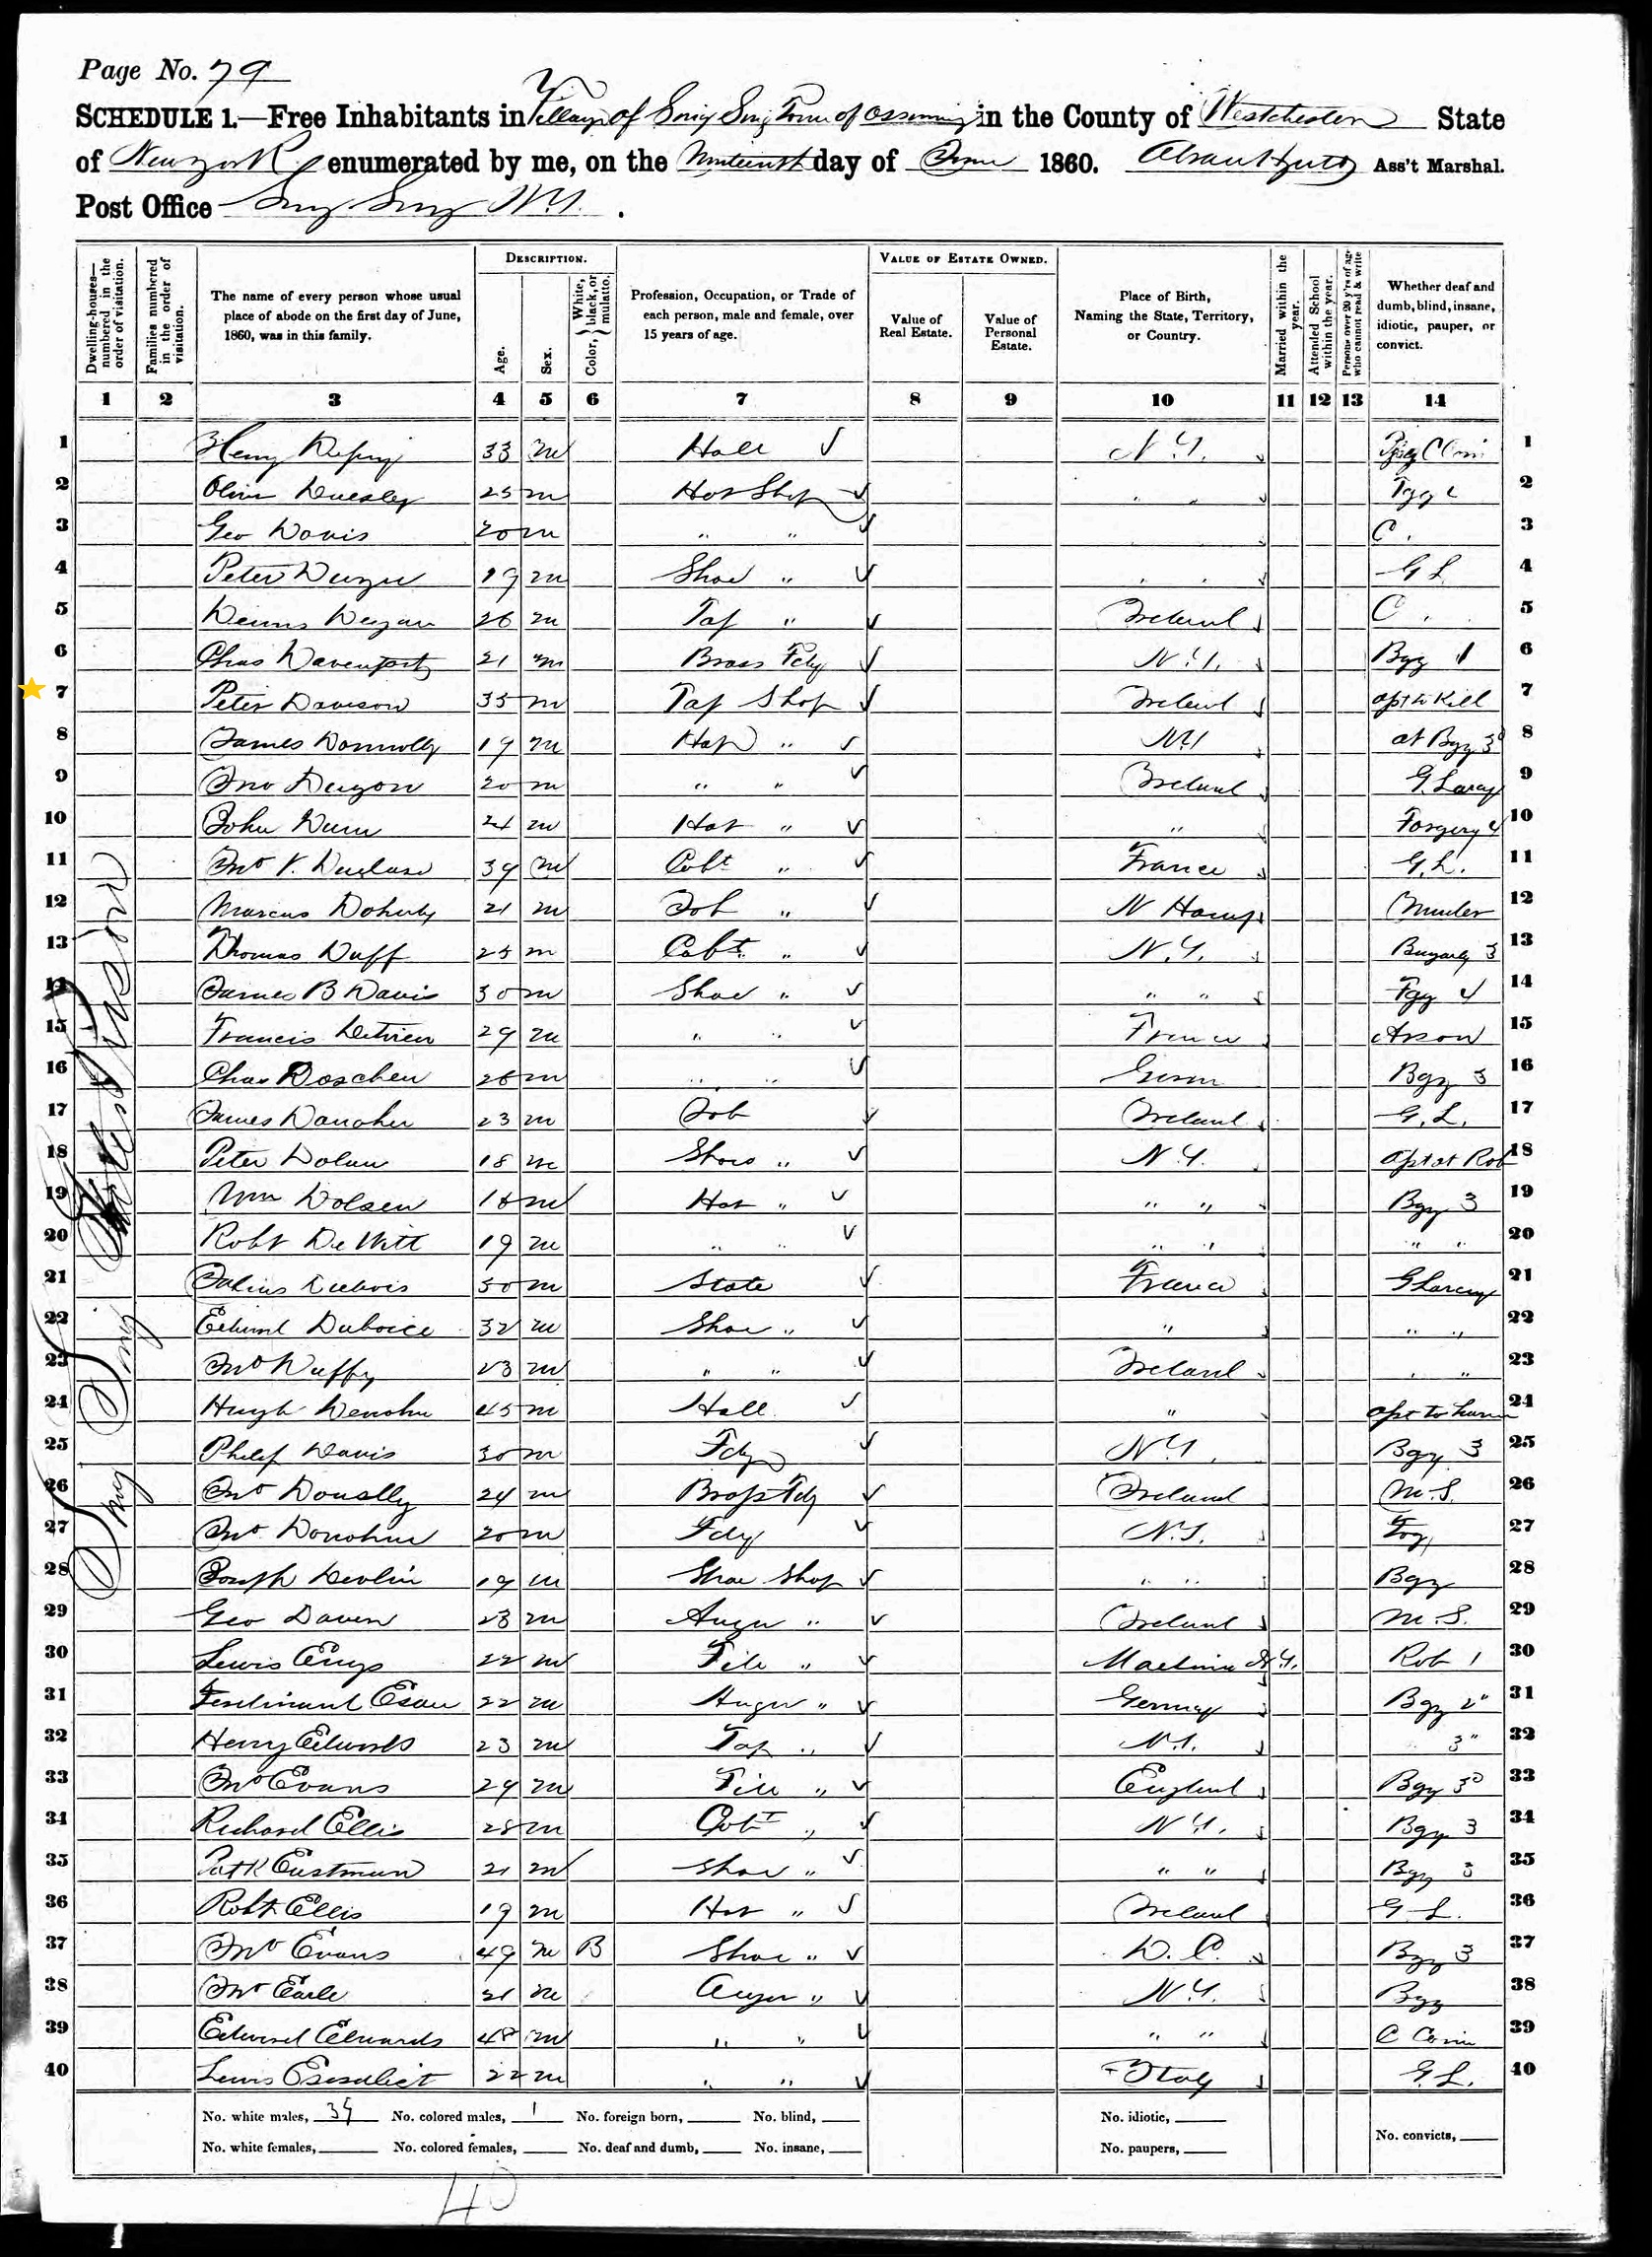 Page No. 79
SCHEDULE 1.—Free Inhabitants in Village of Sing Sing Town of Ossining in the County of Westchester State
of New York enumerated by me, on the Ninteenth day of June 1860. Ass't Marshal.
Post Office Sing Sing N.Y.
Dwelling-houses—numbered in the order of visitation.
Families numbered in the order of visitation.
The name of every person whose usual place of abode on the first day of June, 1860, was in this family.
DESCRIPTION.
Age.
Sex.
Color, White, black, or mulatto.
Profession, Occupation, or Trade of each person, male and female, over 15 years of age.
VALUE OF ESTATE OWNED.
Value of Real Estate.
Value of Personal Estate.
Place of Birth, Naming the State, Territory, or Country.
Married within the year.
Attended School within the year.
Persons over 20 y'rs of age who cannot read & write
Whether deaf and dumb, blind, insane, idiotic, pauper, or convict.
1 2 3 4 5 6 7 8 9 10 11 12 13 14
1 Henry 33 m Hall N.Y. 1
2 25 m Hat Shop " " 2
3 Geo Davis 20 m " " C. 3
4 Peter 19 m Shoe " " " G L 4
5 Dennis 26 m Taf " Ireland C " 5
6 Chas Davenport 21 m Brass Fdy N.Y. Bgy 1 6
7 Peter Davison 35 m Taf Shop Ireland apt to Kill 7
8 James Donnolly 19 m Hat " N.Y. at Bgy 3d 8
9 Jno 20 m " " Ireland G. Larcy 9
10 John Dunn 24 m Hat " " Forgery 4 10
11 Jno V. 39 m Cabt " France G.L. 11
12 Marcus Doherty 21 m Job " N Hamp 12
13 Thomas Duff 25 m Cabt. " N.Y. 3 13
14 James B Davis 30 m Shoe " " " Fgy 4 14
15 Francis 29 m " " France Arson 15
16 Chas Doschen 26 m " " Germ Bgy 3 16
17 James Danaher 23 m Job Ireland G.L. 17
18 Peter Dolan 18 m Shoe " N.Y. apt at Rob 18
19 Wm Dolsen 18 m Hat " " " Bgy 3 19
20 Robt DeWitt 19 m " " " " " " 20
21 Julius Dubois 30 m State France G Larcny 21
22 Edund Duboice 32 m Shoe " " " " 22
23 Jno Duffy 23 m " " Ireland " " 23
24 Hugh Denohu 45 m Hall " apt to 24
25 Philip Davis 30 m Fdy N.Y. Bgy 3 25
26 Jno Donally 24 m Brass Fdy Ireland M.S. 26
27 Jno Donohue 20 m Fdy N.Y. 27
28 Joseph Devlin 19 m Shoe Shop " " Bgy 28
29 Geo Daven 23 m Auger " Ireland M.S. 29
30 Lewis 22 m File " N.Y. Rob 1 30
31 Ferdinand Esau 22 m Auger " Germay Bgy 2" 31
32 Henry Edwards 23 m Taf " N.Y. 3" 32
33 Jno Evans 29 m File " England Bgy 3d 33
34 Richard Ellis 28 m Cabt " N.Y. Bgy 3 34
35 Patk Eustman 21 m Shoe " " " Bgy 3 35
36 Robt Ellis 19 m Hat " Ireland G L. 36
37 Jno Evans 49 m B Shoe " D.C. Bgy 3 37
38 Jno Earle 21 m Auger " N.Y. Bgy 38
39 Edward Edwards 48 m " " " " C Coin 39
40 Lewis 22 m " " Italy G.L. 40
Sing Sing States Prison
No. white males, 39 No. colored males, 1 No. foreign born, No. blind, No. idiotic, No. convicts,
No. white females, No. colored females, No. deaf and dumb, No. insane, No. paupers,
40